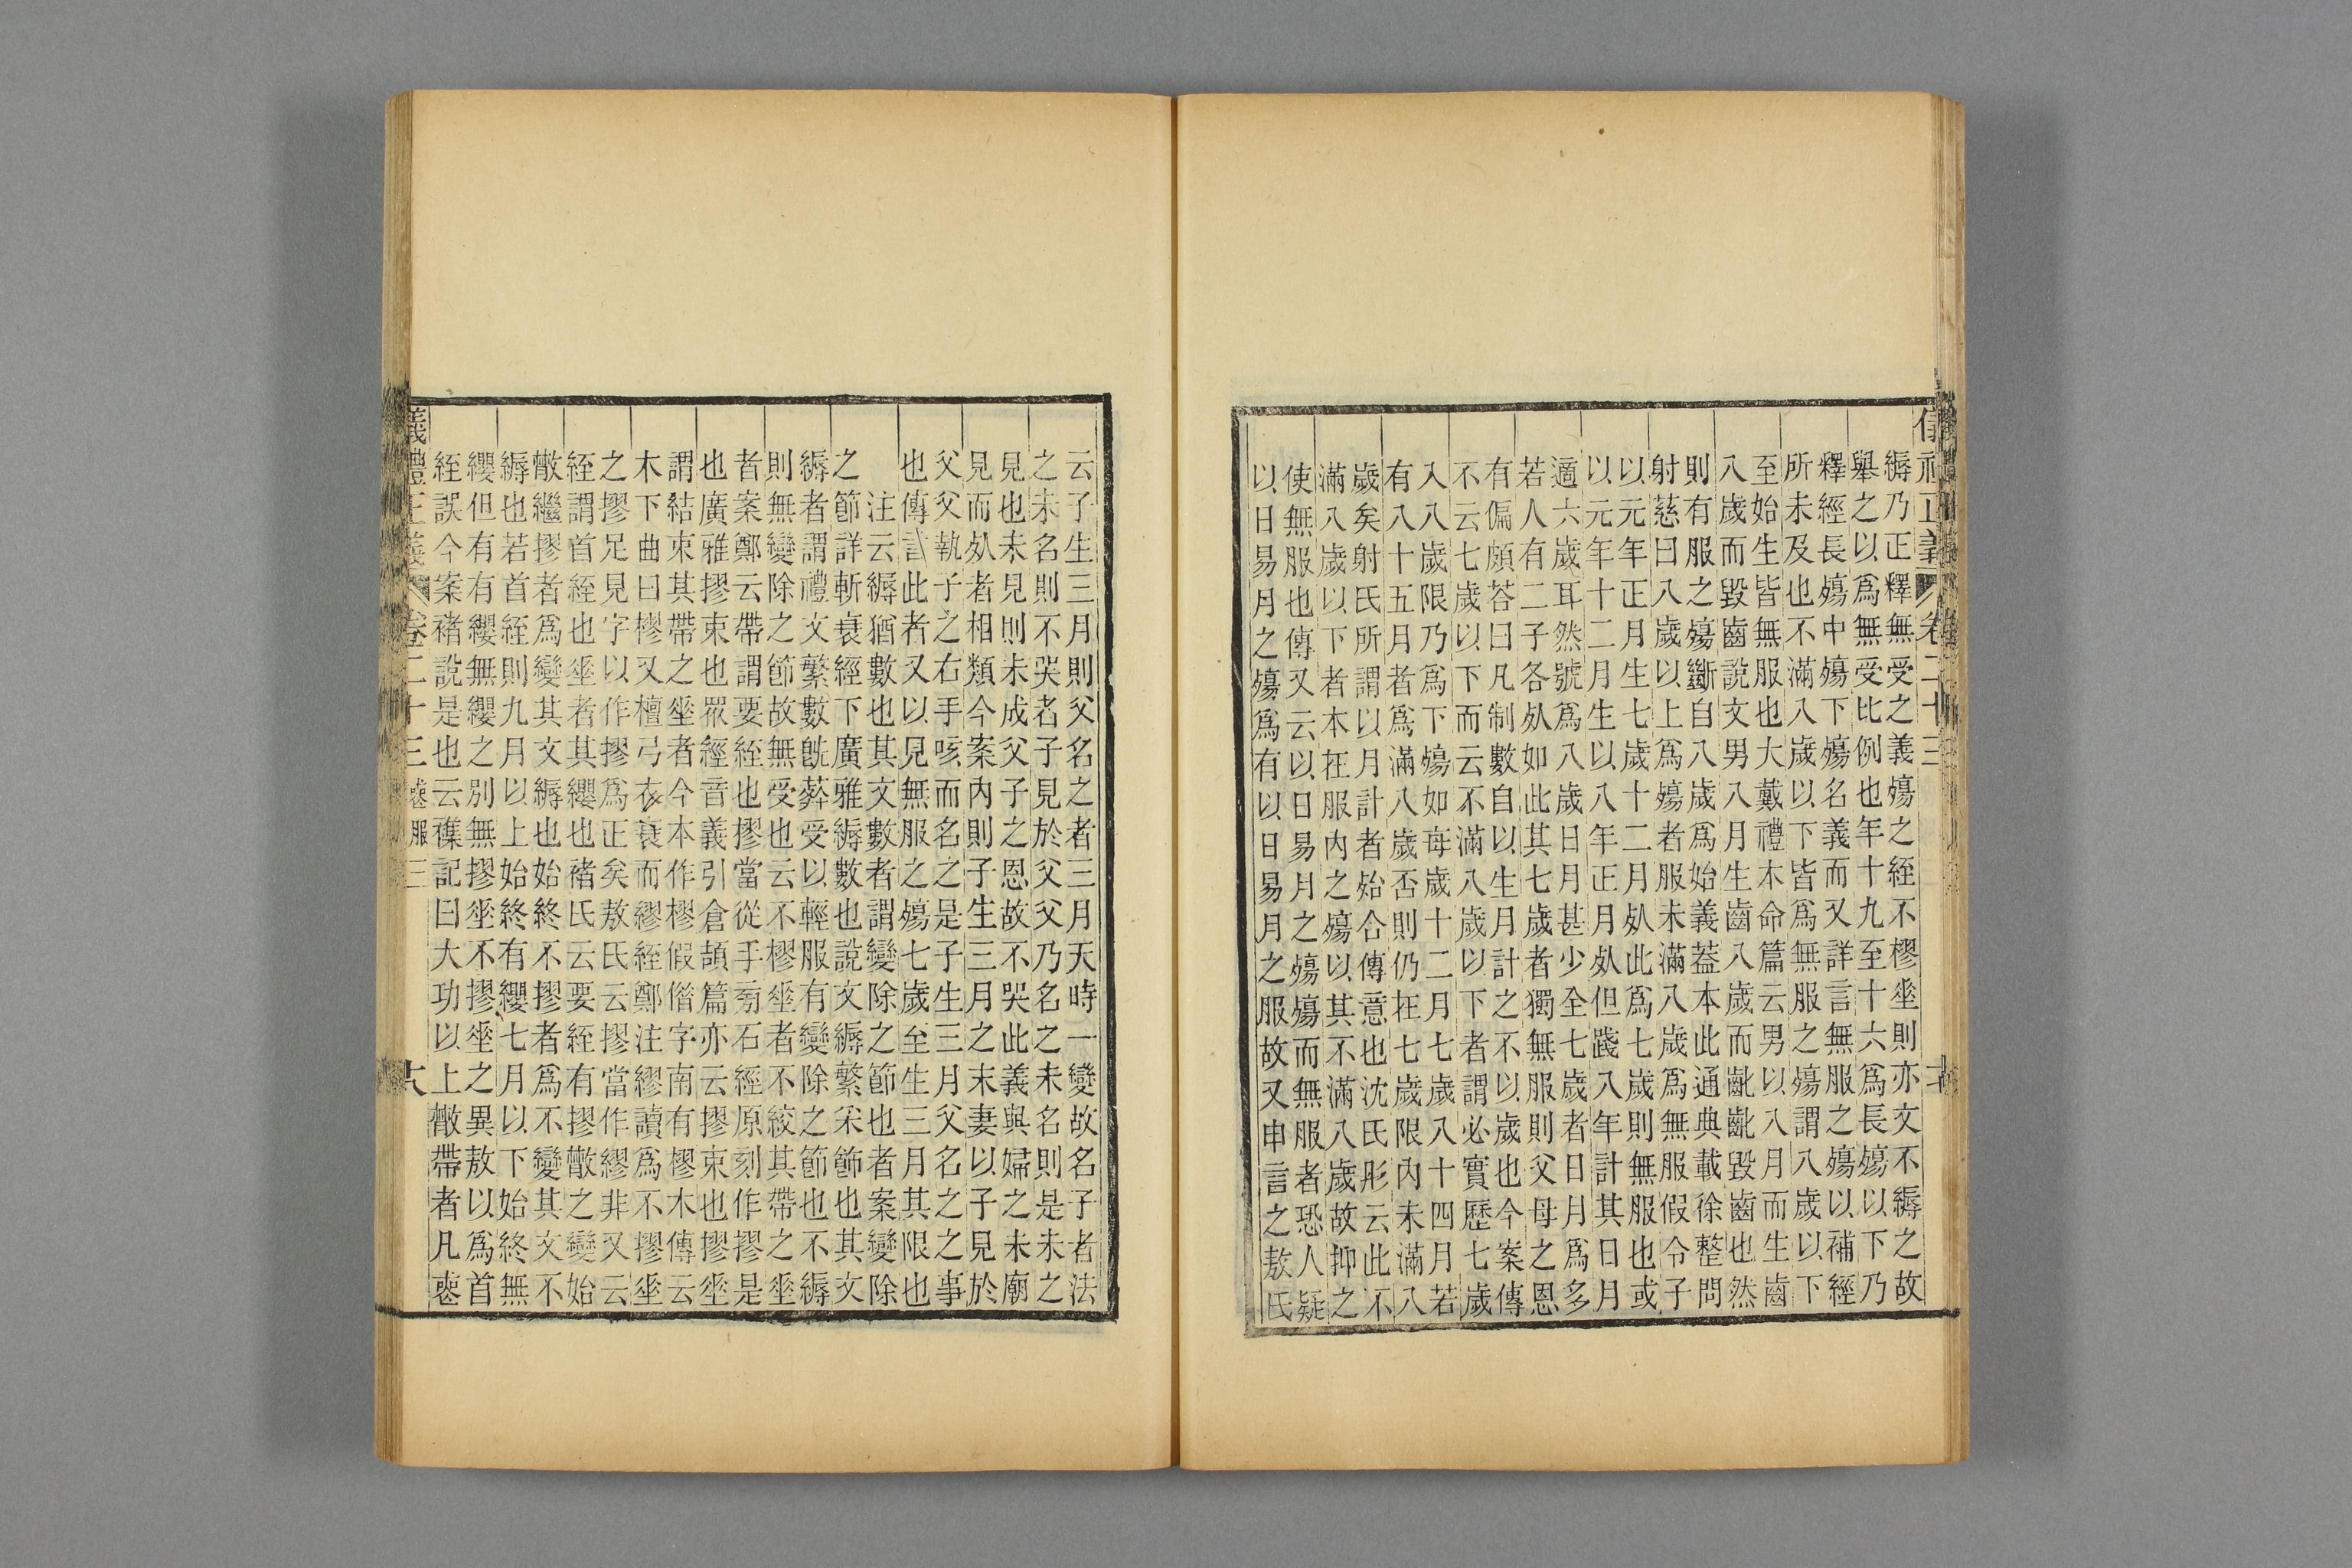 禮正義 卷二十三
縟乃正釋無受之義殤之絰不樛垂則亦文不縟之故
舉之以爲無受比例也年十九至十六爲長殤以下乃
釋經長殤中殤下殤名義而又詳言無服之殤以補經
所未及也不滿八歲以下皆爲無服之殤謂八歲以下
至始生皆無服也大戴禮本命篇云男以八月而生齒
八歲而毀齒說文男八月生齒八歲而齔齔毀齒也然
則有服之殤斷自八歲爲始義葢本此通典載徐整問
射慈曰八歲以上爲殤者服未滿八歲爲無服假令子
以元年正月生七歲十二月死此爲七歲則無服也或
以元年十二月生以八年正月死但踐八年計其日月
適六歲耳然號爲八歲日月甚少全七歲者日月爲多
若人有二子各死如此其七歲者獨無服則父母之恩
有偏頗荅曰凡制數自以生月計之不以歲也今案傳
不云七歲以下而云不滿八歲以下者謂必實歷七歲
入八歲限乃爲下殤如每歲十二月七歲八十四月若
有八十五月者爲滿八歲否則仍在七歲限內未滿八
歲矣射氏所謂以月計者始合傳意也沈氏彤云此不
滿八歲以下者本在服內之殤以其不滿八歲故抑之
使無服也傳又云以日易月之殤殤而無服者恐人疑
以日易月之殤爲有以日易月之服故又申言之敖氏
云子生三月則父名之者三月天時一變故名子者法
之未名則不哭者子見於父父乃名之未名則是未之
見也未見則未成父子之恩故不哭此義與婦之未廟
見而死者相類今案內則子生三月之末妻以子見於
父父執子之右手咳而名之是子生三月父名之之事
也傳言此者又以見無服之殤七歲至生三月其限也
注云縟猶數也其文數者謂變除之節也者案變除
之節詳斬衰經下廣雅縟數也說文縟繁采飾也其文
縟者謂禮文繁數旣葬受以輕服有變除之節也不縟
則無變除之節故無受也云不樛垂者不絞其帶之垂
者案鄭云帶謂要絰也摎當從手旁石經原刻作摎是
也廣雅摎束也眾經音義引倉頡篇亦云摎束也摎垂
謂結束其帶之垂者今本作樛假偕字南有樛木傳云
木下曲曰樛又檀弓衣衰而繆絰鄭注繆讀爲不摎垂
之摎足見字以作摎爲正矣敖氏云摎當作繆非又云
絰謂首絰也垂者其纓也褚氏云要絰有摎散之變始
散繼摎者爲變其文縟也始終不摎者爲不變其文不
縟也若首絰則九月以上始終有纓七月以下始終無
纓但有有纓無纓之別無摎垂不摎垂之異敖以爲首
絰誤今案褚說是也云雜記曰大功以上散帶者凡喪
儀禮正義 卷二十三 喪服三 十八